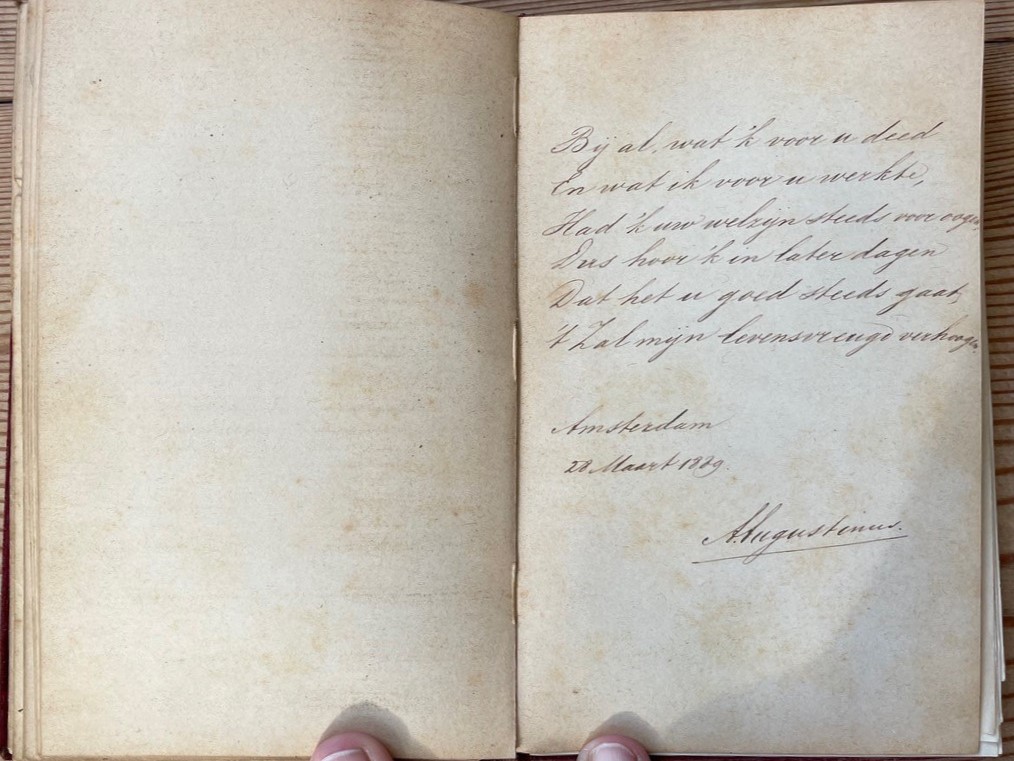 Bij al, wat 'k voor u deed
En wat ik voor u werkte,
Had 'k uw welzijn steeds voor oogen,
Dus hoor 'k in later dagen
Dat het u goed steeds gaat,
't Zal mijn levensvreugd verhoogen.
Amsterdam
28 Maart 1889.
A. Augustinus.